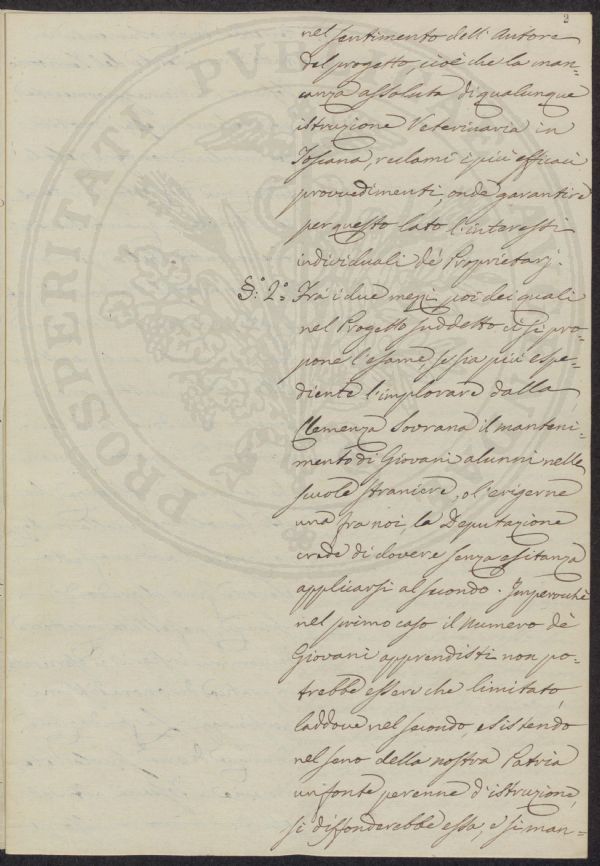 2
nel sentimento dell'Autore
del progetto, cioè che la man=
canza assoluta di qualunque
istruzione Veterinaria in
Toscana, reclami i più efficaci
provvedimenti, onde garantire
per questo lato l'interessi
individuali de' Proprietarj.
§.° 2.° Frà i due mezzi poi dei quali
nel Progetto suddetto ci si pro=
pone l'esame, se sia più espe=
diente l'implorare dalla
Clemenza Sovrana il manteni=
mento di Giovani alunni nelle
scuole straniere, o l'erigerne
una fra noi, la Deputazione
crede di dovere senza esitanza
applicarsi al secondo. Imperocchè
nel primo caso il numero dè
Giovani apprendisti non po=
trebbe essere che limitato,
laddove nel secondo, esistendo
nel seno della nostra Patria
un fonte perenne d'istruzione,
si diffonderebbe essa, e si man=
PROSPERITATI PVBLICAE